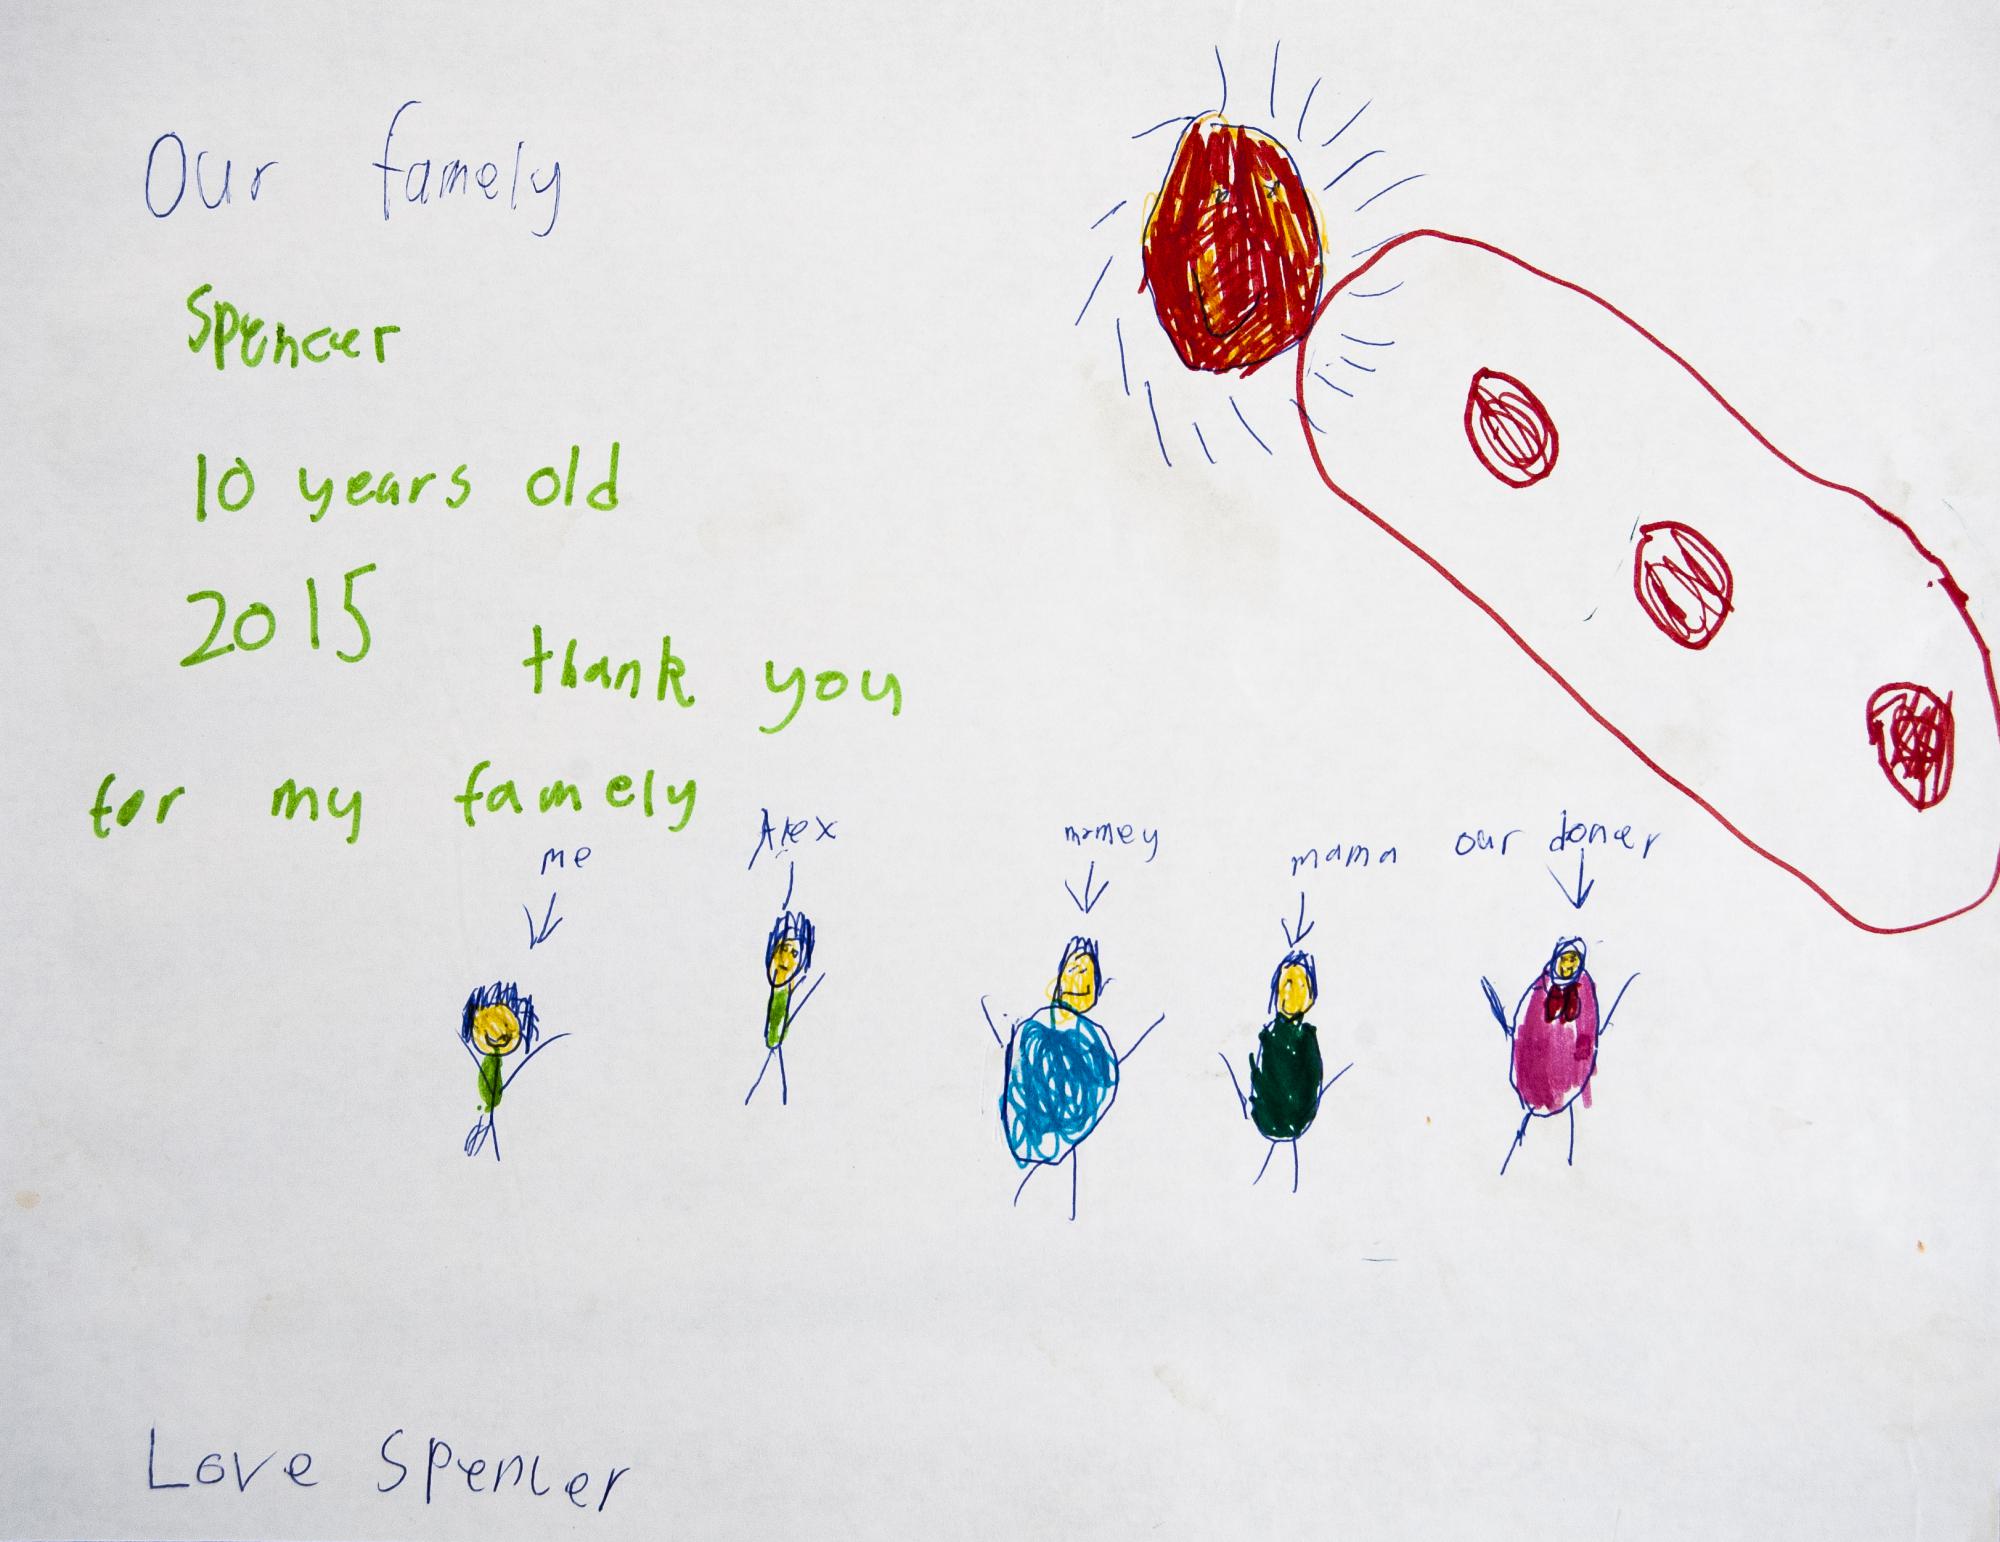 Our famely
Spencer
10 years old
2015
thank you
for my famely
me
Alex
momey
mama
our doner
Love Spencer